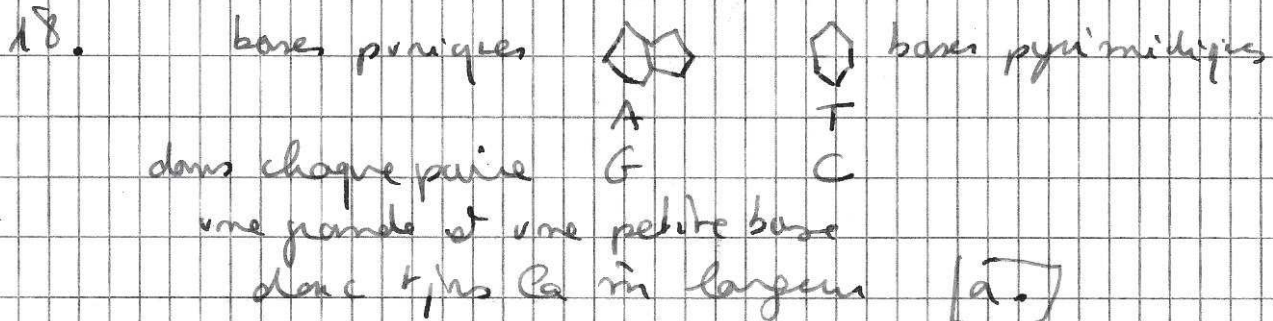 18. bases puriques bases pyrimidiques
A T
dans chaque paire G C
une grande et une petite base
donc tjrs la m̂ largeur a.